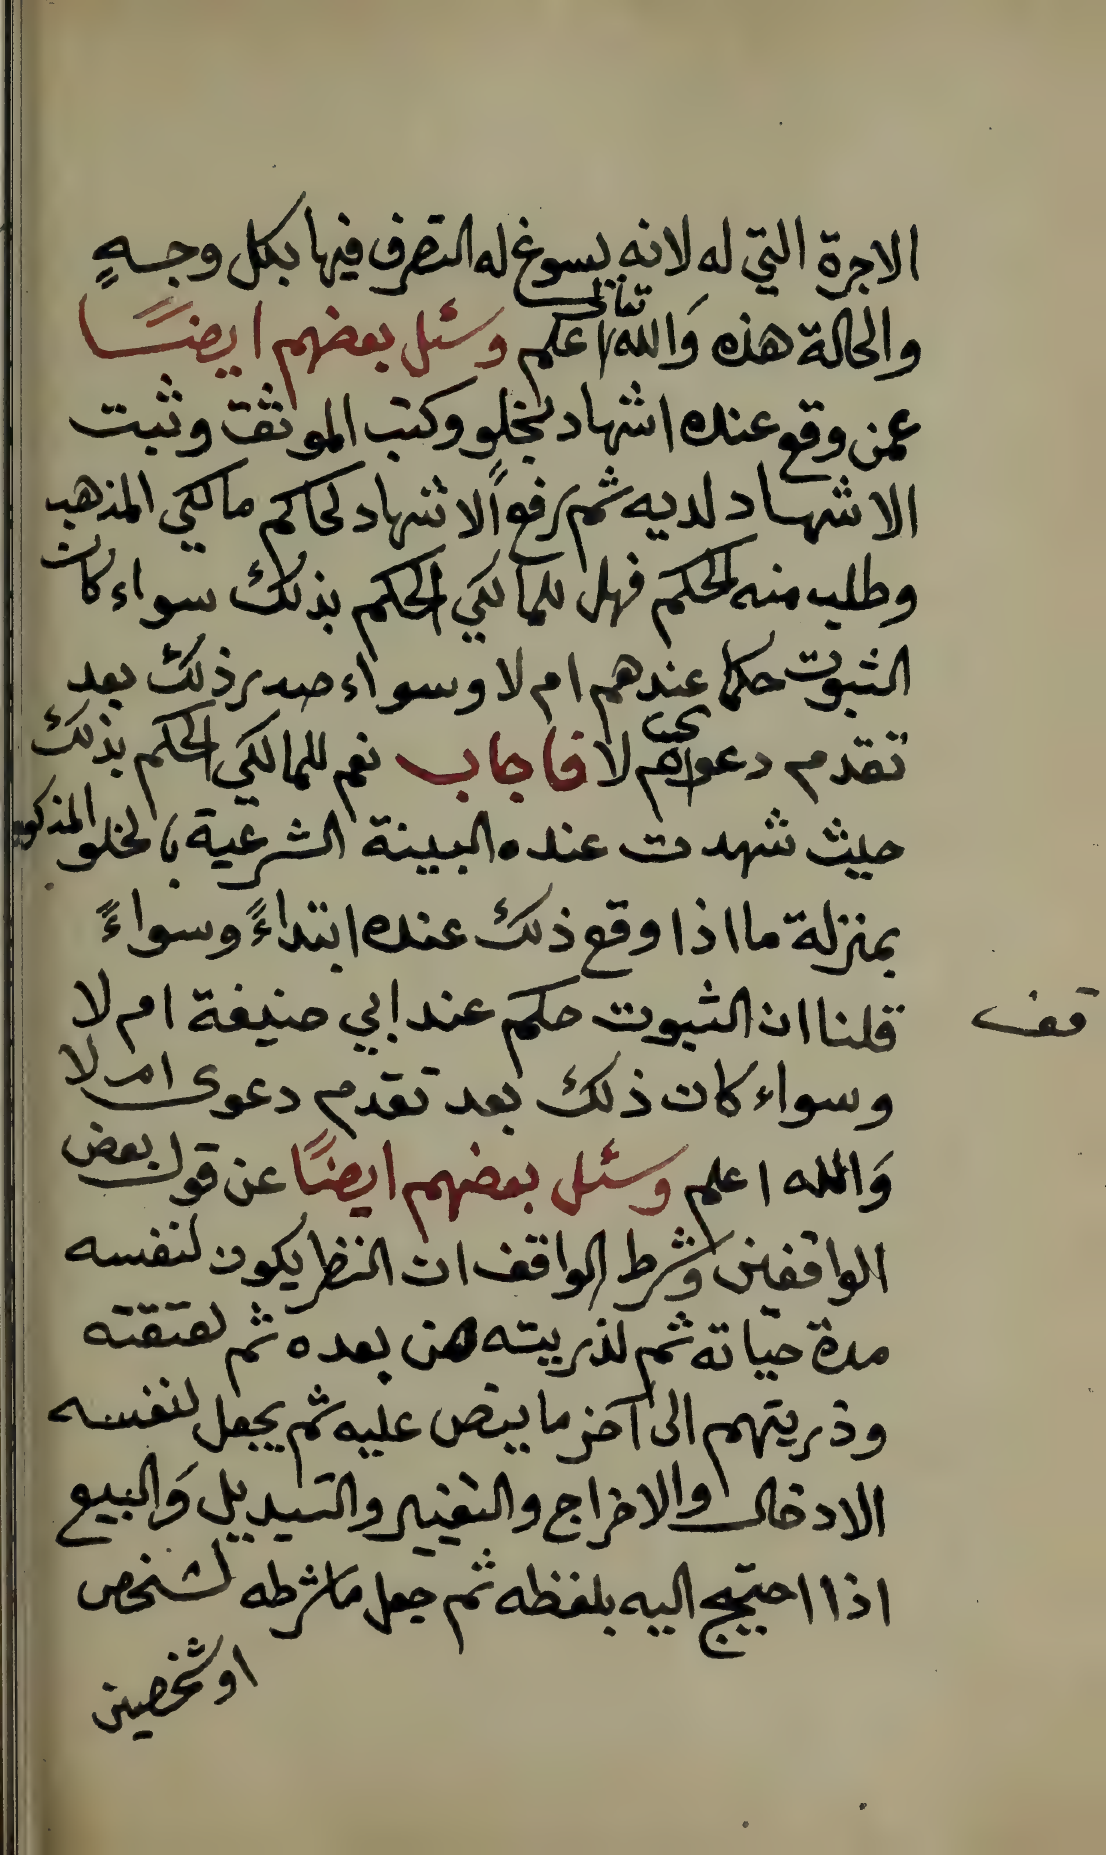 الاجرة التي له لانه يسوغ له التصرف فيها بكل وجهٍ
والحالة هذه وَالله تعالى اعلم وسئل بعضهم ايضًا
عمن وقع عنده اشهاد بخلو وكتب الموثق وثبت
الاشهاد لديه ثم رفعوا الاشهاد لحاكم مالكي المذهب
وطلب منه الحكم فهل للمالكي الحكم بذلك سواء كان
الثبوت حكما عندهم ام لا وسواء صدر ذلك بعد
تقدم دعوى ام لا فاجاب نعم للمالكي الحكم بذلك
حيث شهدت عنده البينة الشرعية بالخلو المذكور
بمنزلة ما اذا وقع ذلك عنده ابتداءً وسواءً
قلنا ان الثبوت حكم عند ابي حنيفة ام لا
قف
وسواء كان ذلك بعد تقدم دعوى ام لا
وَالله اعلم وسئل بعضهم ايضًا عن قول بعض
الواقفين وشرط الواقف ان النظر يكون لنفسه
مدة حياته ثم لذريته من بعده ثم لعتقته
وذريتهم الى آخر ما ينص عليه ثم يجعل لنفسه
الادخال والاخراج والتغيير والتبديل وَالبيع
اذا احتيج اليه بلفظه ثم جعل ما شرطه لشخص
او شخصين